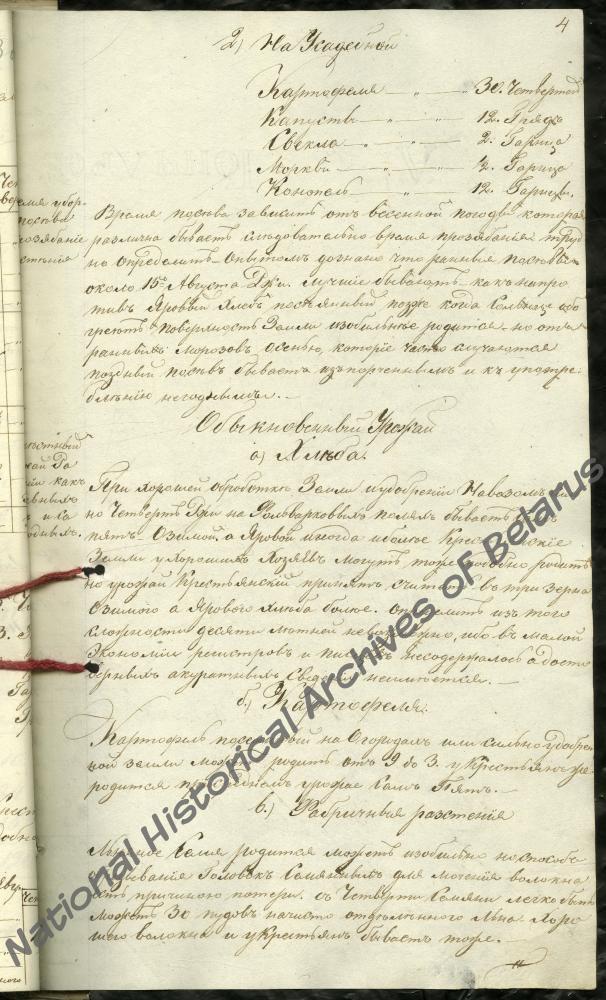 4
2) На Усадебной
Картофеля — „ — „ 30. Четвертей
Капусты — „ — „ — 12. Грядъ
Свекла — „ — „ — 2. Гарнца
Моркви — „ — „ — 2. Гарнца
Конопель — „ — „ — 12. Гарнцы.
Время посева зависитъ отъ весенной погоды которая
различна бываетъ следовательно время прозябанія труд
но определить опытомъ дознано что ранніи посевы
около 15го Августа Дни. лучшіе бываютъ какъ напро
тивъ Яровый Хлебъ посеянный позже когда Солнце обо
греетъ поверхность Земли изобильнее родится но отъ
раннихъ морозовъ осенью, которіе часто случаются
поздній посевъ бываетъ изпорченнымъ и къ употре
бленію негоднымъ.
Обыкновенный Урожай
а) Хлеба.
При хорошей обработке Земли и удобреніи Навозомъ
но Четверть Дни на Фольварковыхъ поляхъ бываетъ
пять Озимой а Яровой иногда и более Крестьянскіе
Земли у хорошихъ Хозяевъ могутъ тоже родить
но урожай Крестьянскій принятъ въ три зерна
Озимого а Ярового Хлеба более. изъ того
сложности десяти летной ибо въ малой
Экономіи регистровъ и несодержалось а досто
верныхъ акуратныхъ Сведеній неимеется.
б) Картофеля.
Картофель посеянный на Огородахъ или сильно удобрен
ной земли можетъ родить отъ 2 до 3. у Крестьянъ же
родится при урожае Самъ Пятъ.
в.) Фабричныя разстенія
Льняное Семя родится можетъ изобильно но способъ
Головокъ Семянныхъ для моченія волокна
причиною потери. съ Четверти Семяни легко быть
можетъ 30 пудовъ начисто отделенного Льна Хоро
шего волокна и у Крестьянъ бываетъ тоже.
National Historical Archives of Belarus